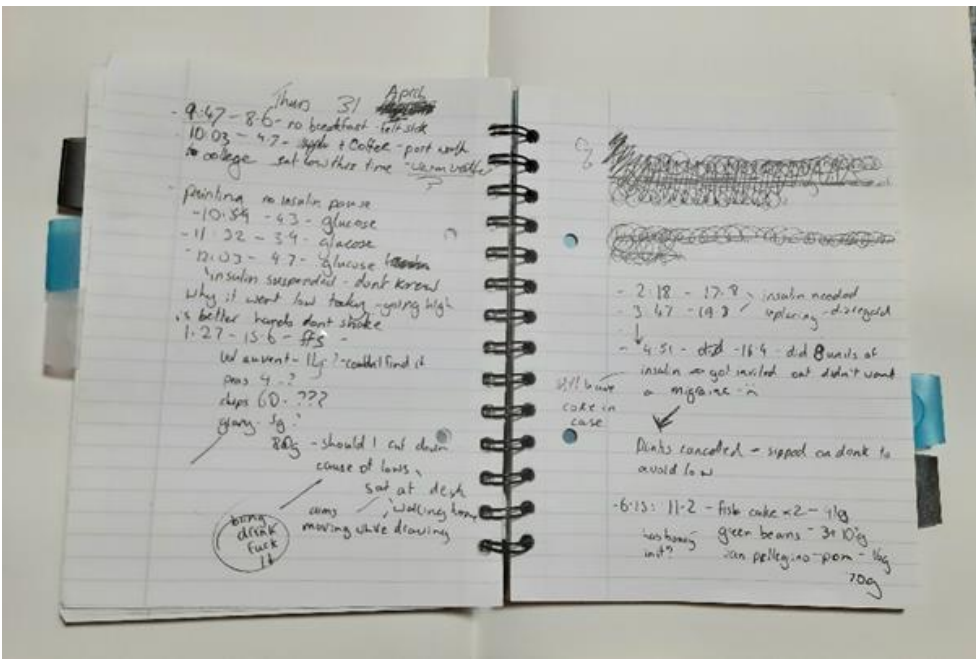 Thurs 31 April
- 9:47 - 8.6 - no breakfast - felt sick
10:03 - 4.7 - + Coffee - part
to college eat low this time - warm
?
- painting no insulin
- 10:34 - 4.3 - glucose
- 11:32 - 3.9 - glucose
- 12:03 - 4.7 - glucose
insulin suspended - dont know
why it went low today - going high
is better hands dont shake
1.27 - 15.6 - ffs -
- 11g? - couldn't find it
peas 4 - ?
chips 60 - ???
gravy - 5g?
80g - should I cut down
cause of lows
sat at desk
walking home
arms
moving while drawing
bring
drink
fuck
it
- 2:18 - 17.8 insulin needed
- 3:47 - 19.8 - disregard
- 4:51 - did - 16.4 - did 8 units of
insulin got invited out didn't want
a migraine
still have
coke in
case
Drinks cancelled - sipped on drink to
avoid low
- 6:15: 11.2 - fish cake x2 - 41g
green beans - 10g
has honey
in it?
san pellegrino - pom - 16g
70g